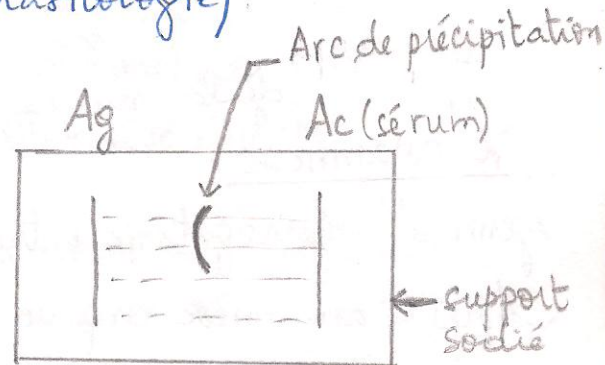 Arc de précipitation
Ag
Ac (sérum)
support
sodié